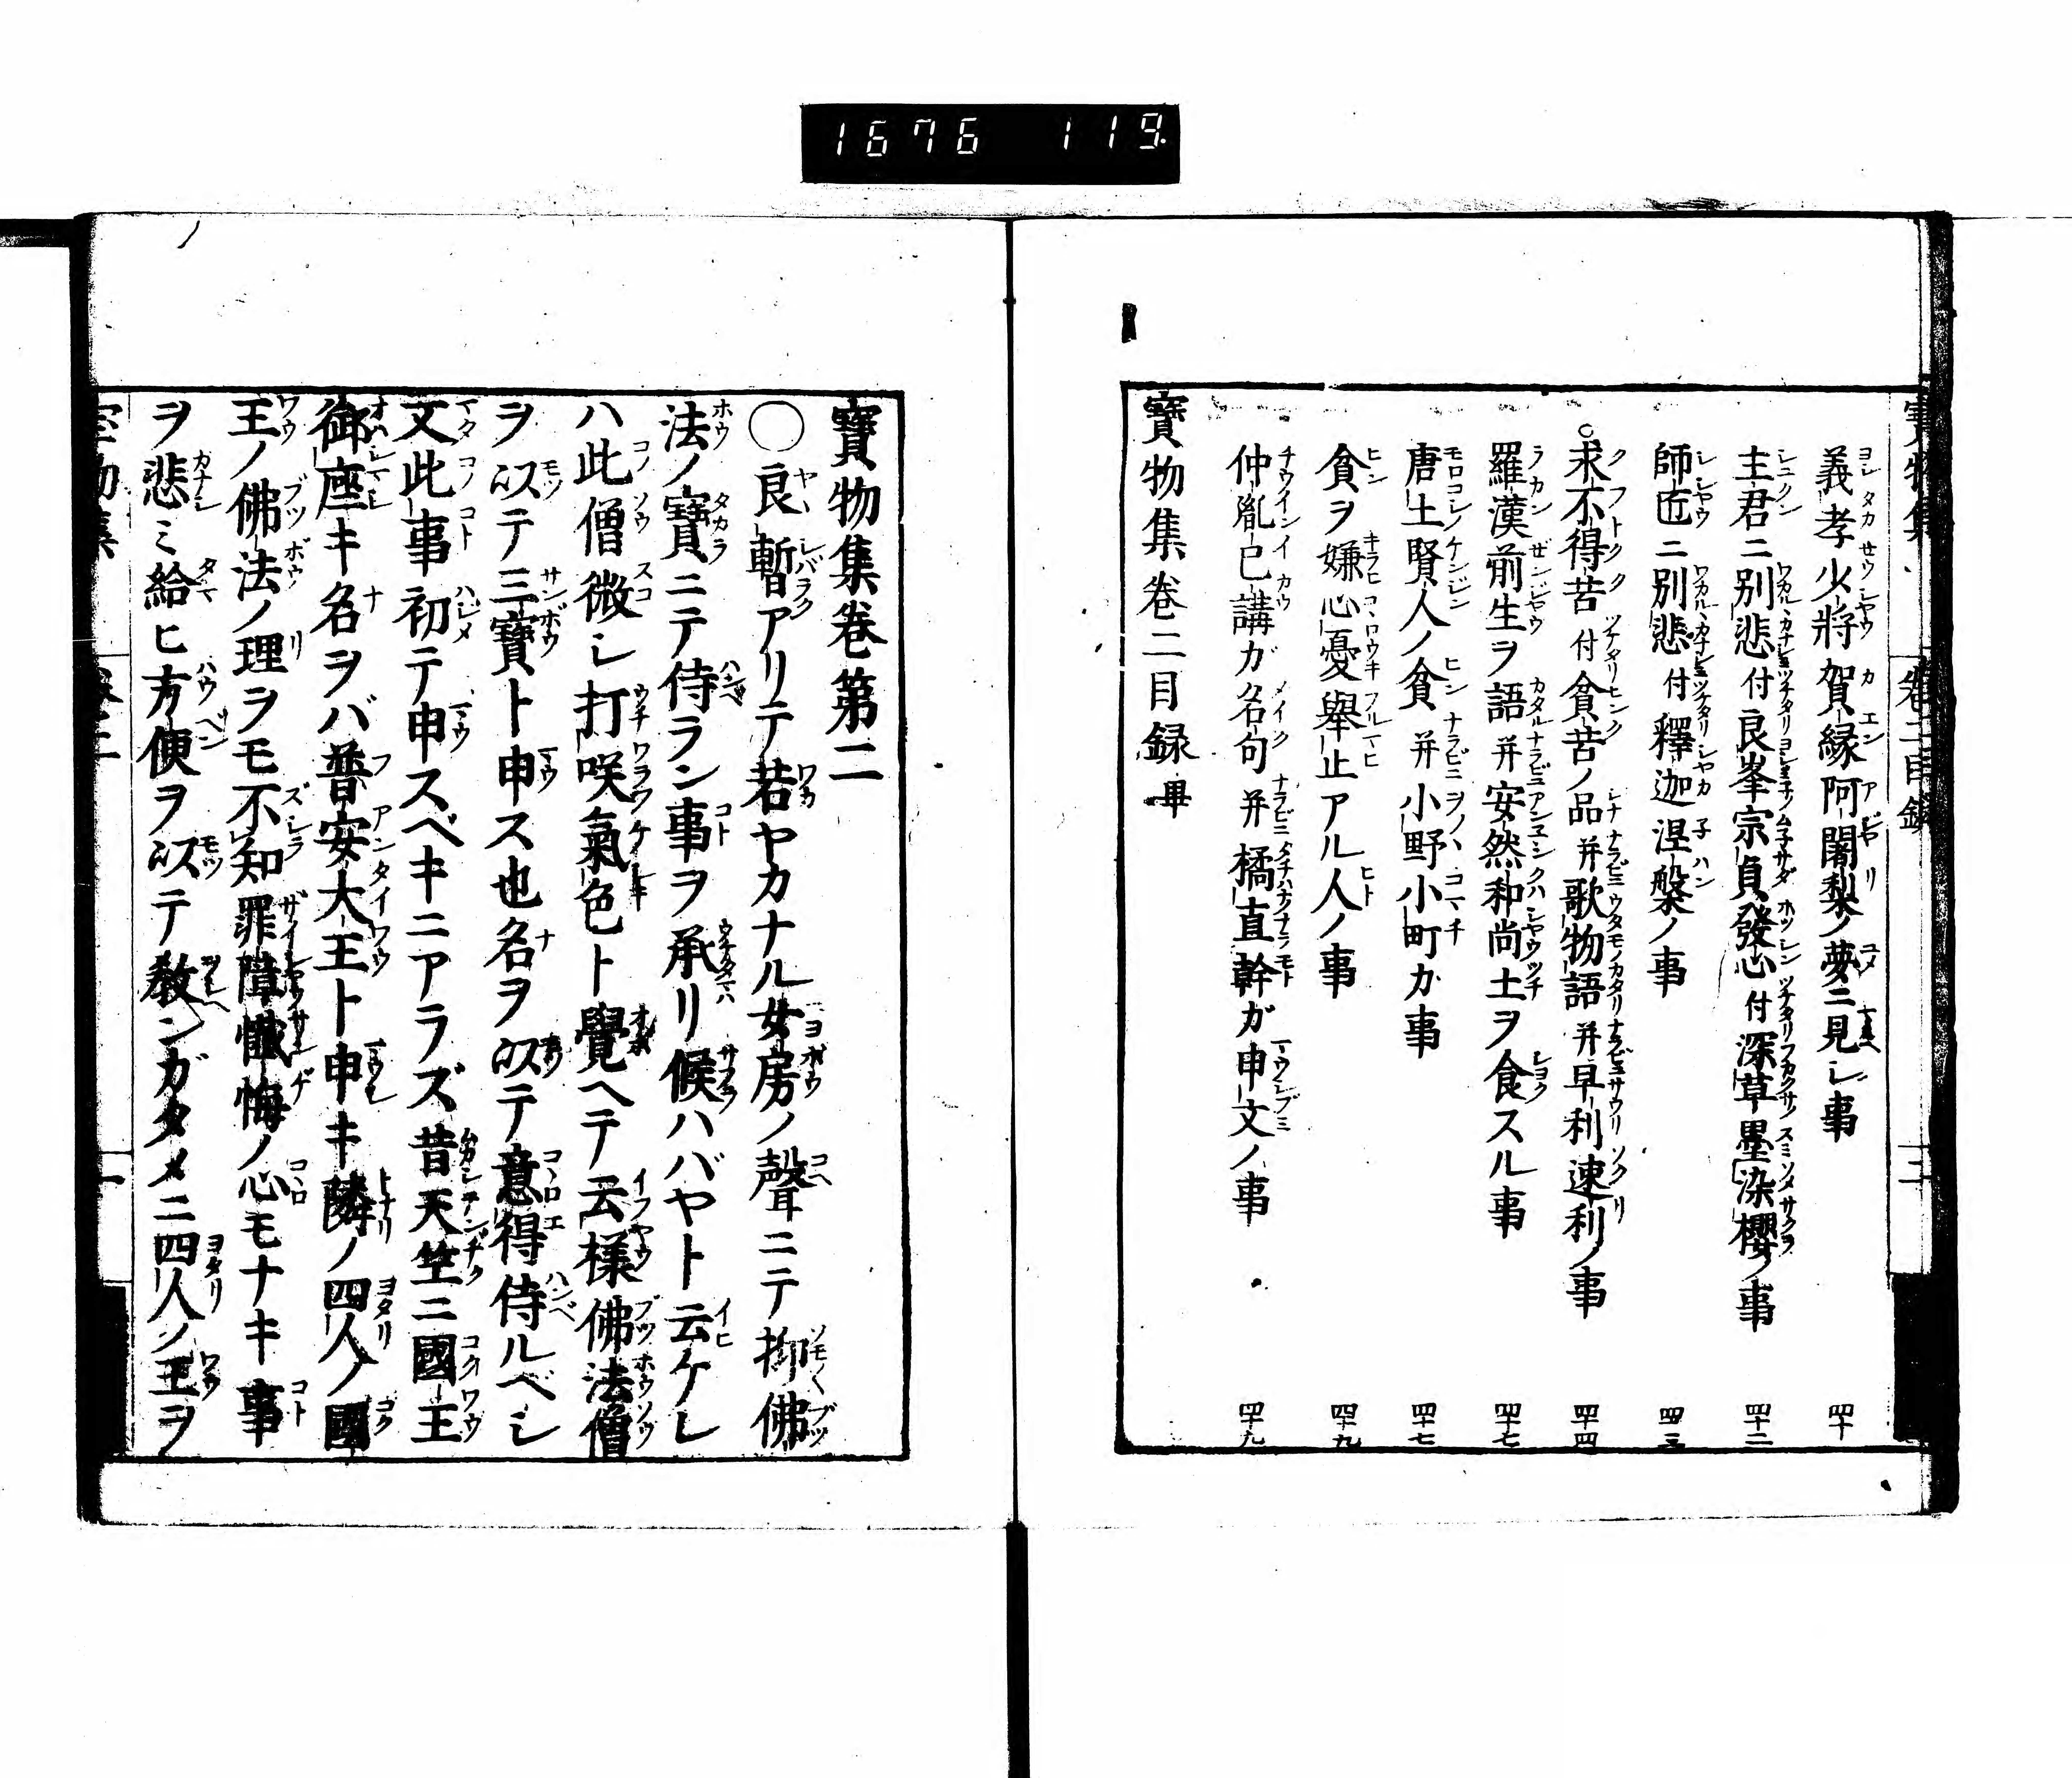 1676 119
寶物集 卷二目録 二
義孝少將賀縁阿闍梨ノ夢ニ見シ事 四十
主君ニ別悲付良峯宗貞發心付深草墨染櫻ノ事 四十二
師匠ニ別悲付釋迦涅槃ノ事 四十三
○求不得苦付貧苦ノ品并歌物語并早利速利ノ事 四十四
羅漢前生ヲ語并安然和尚土ヲ食スル事 四十七
唐土賢人ノ貧并小野小町カ事 四十七
貧ヲ嫌心憂舉止アル人ノ事 四十九
仲胤已講ガ名句并橘直幹ガ申文ノ事 四十九
寶物集卷二目録畢
寶物集卷第二
○良暫アリテ若ヤカナル女房ノ聲ニテ抑佛
法ノ寶ニテ侍ラン事ヲ承リ候ハバヤト云ケレ
ハ此僧微シ打咲氣色ト覺ヘテ云樣佛法僧
ヲ以テ三寶ト申ス也名ヲ以テ意得侍ルベシ
文此事初テ申スベキニアラズ昔天竺ニ國王
御座キ名ヲバ普安大王ト申キ隣ノ四人ノ國
王ノ佛法ノ理ヲモ不知罪障懺悔ノ心モナキ事
ヲ悲ミ給ヒ方便ヲ以テ教ンガタメニ四人ノ王ヲ